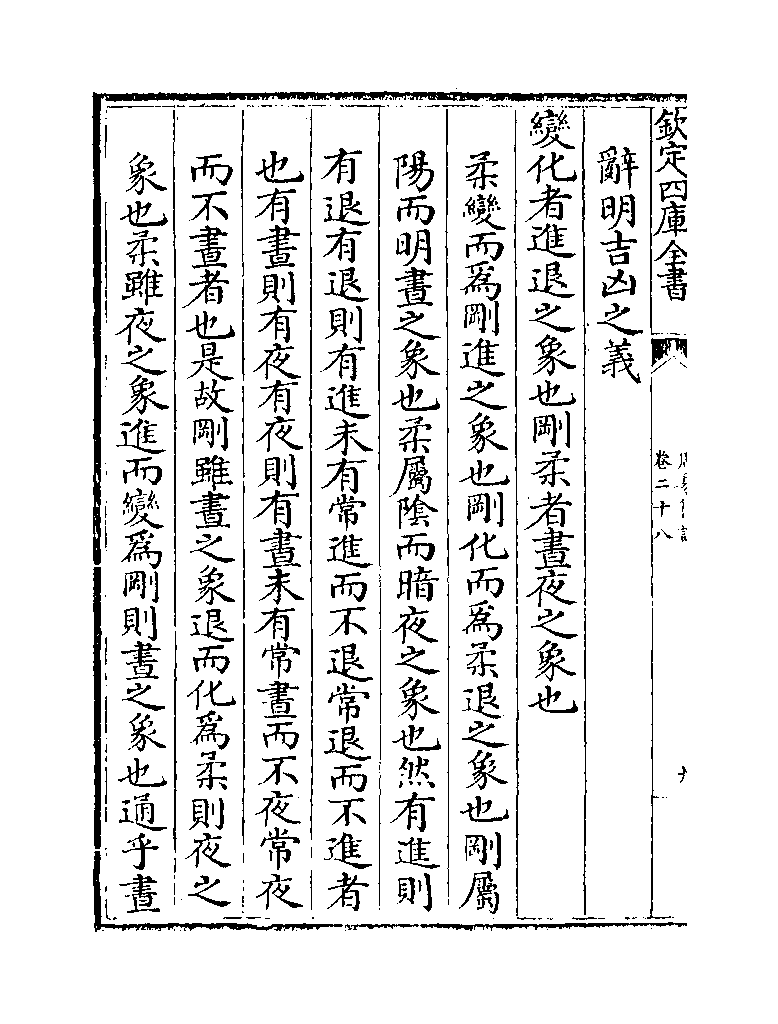 欽定四庫全書
卷二十八
辭明吉凶之義
變化者進退之象也剛柔者晝夜之象也
柔變而為剛進之象也剛化而為柔退之象也剛屬
陽而明晝之象也柔屬陰而暗夜之象也然有進則
有退有退則有進未有常進而不退常退而不進者
也有晝則有夜有夜則有晝未有常晝而不夜常夜
而不晝者也是故剛雖晝之象退而化為柔則夜之
象也柔雖夜之象進而變為剛則晝之象也通乎晝